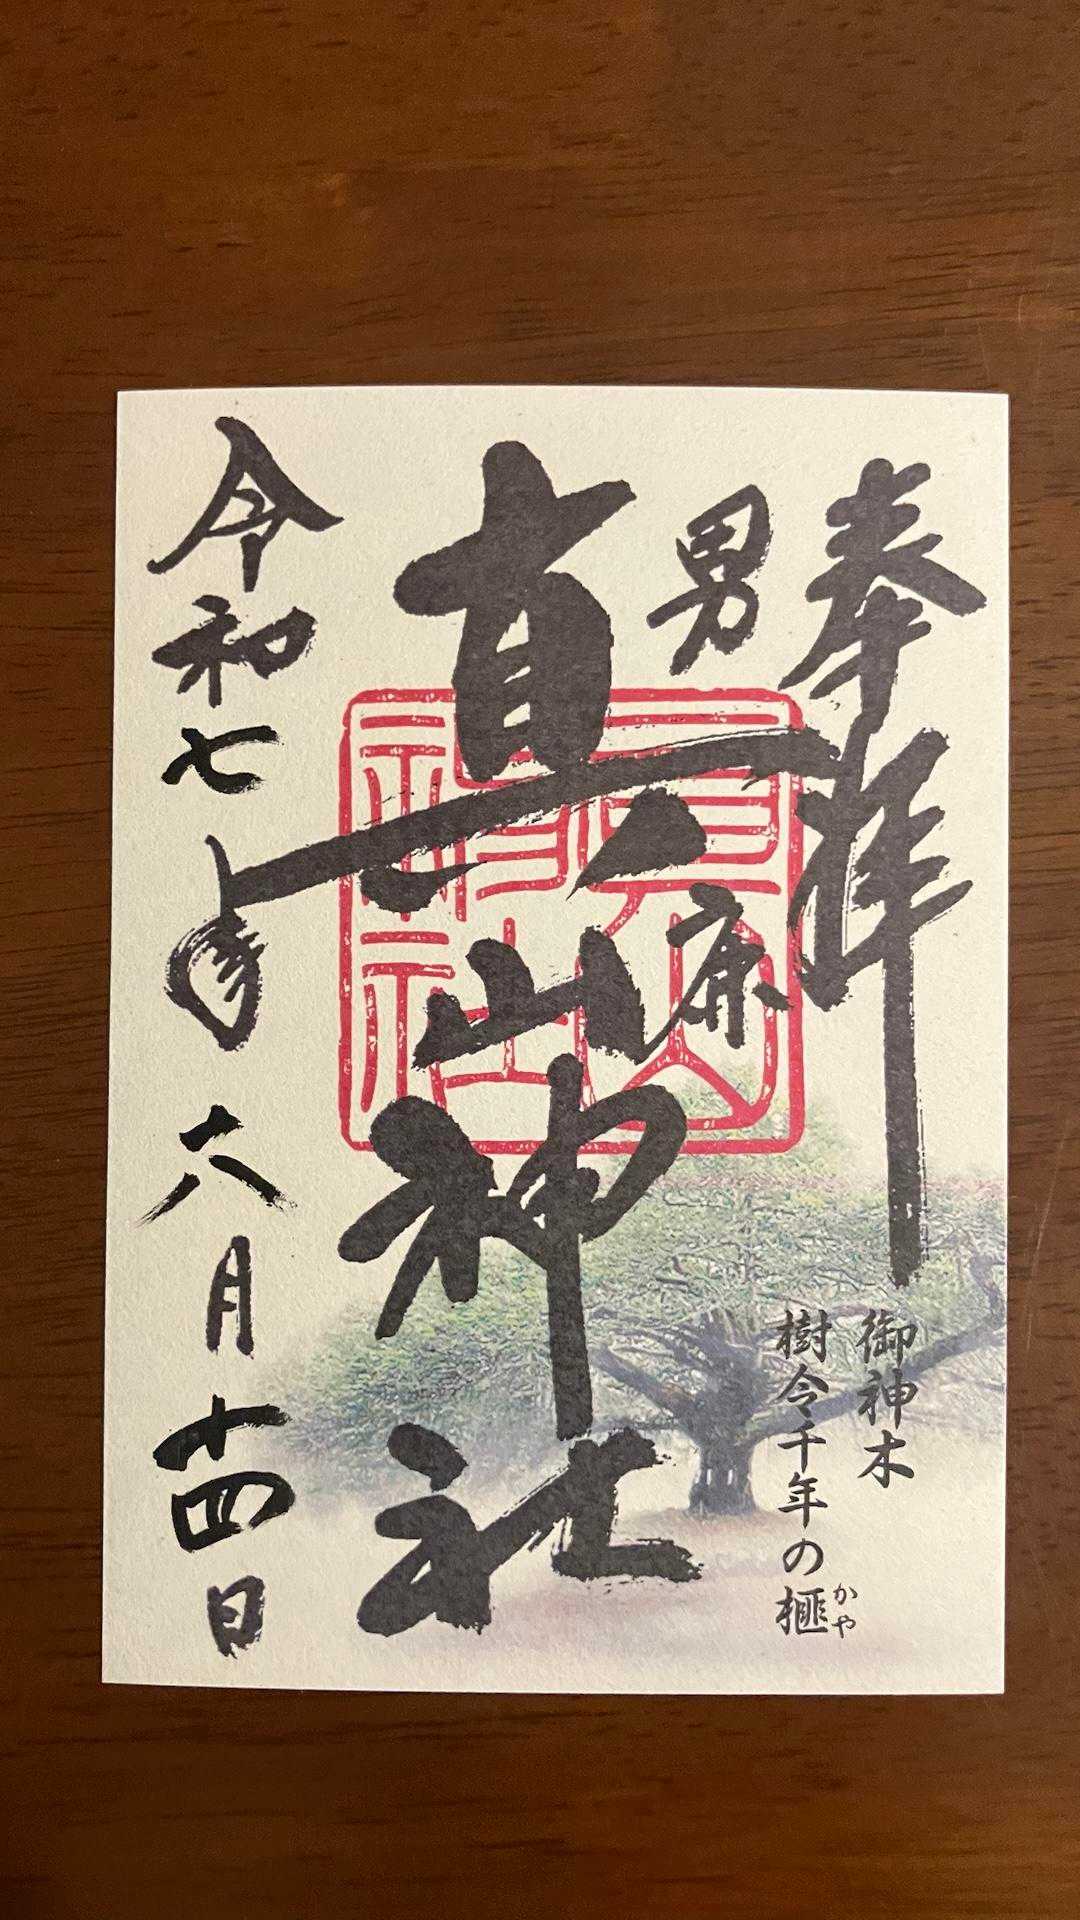 奉拝
男鹿
真山神社
令和七年六月十四日
御神木
樹令千年の榧
かや
真山神社